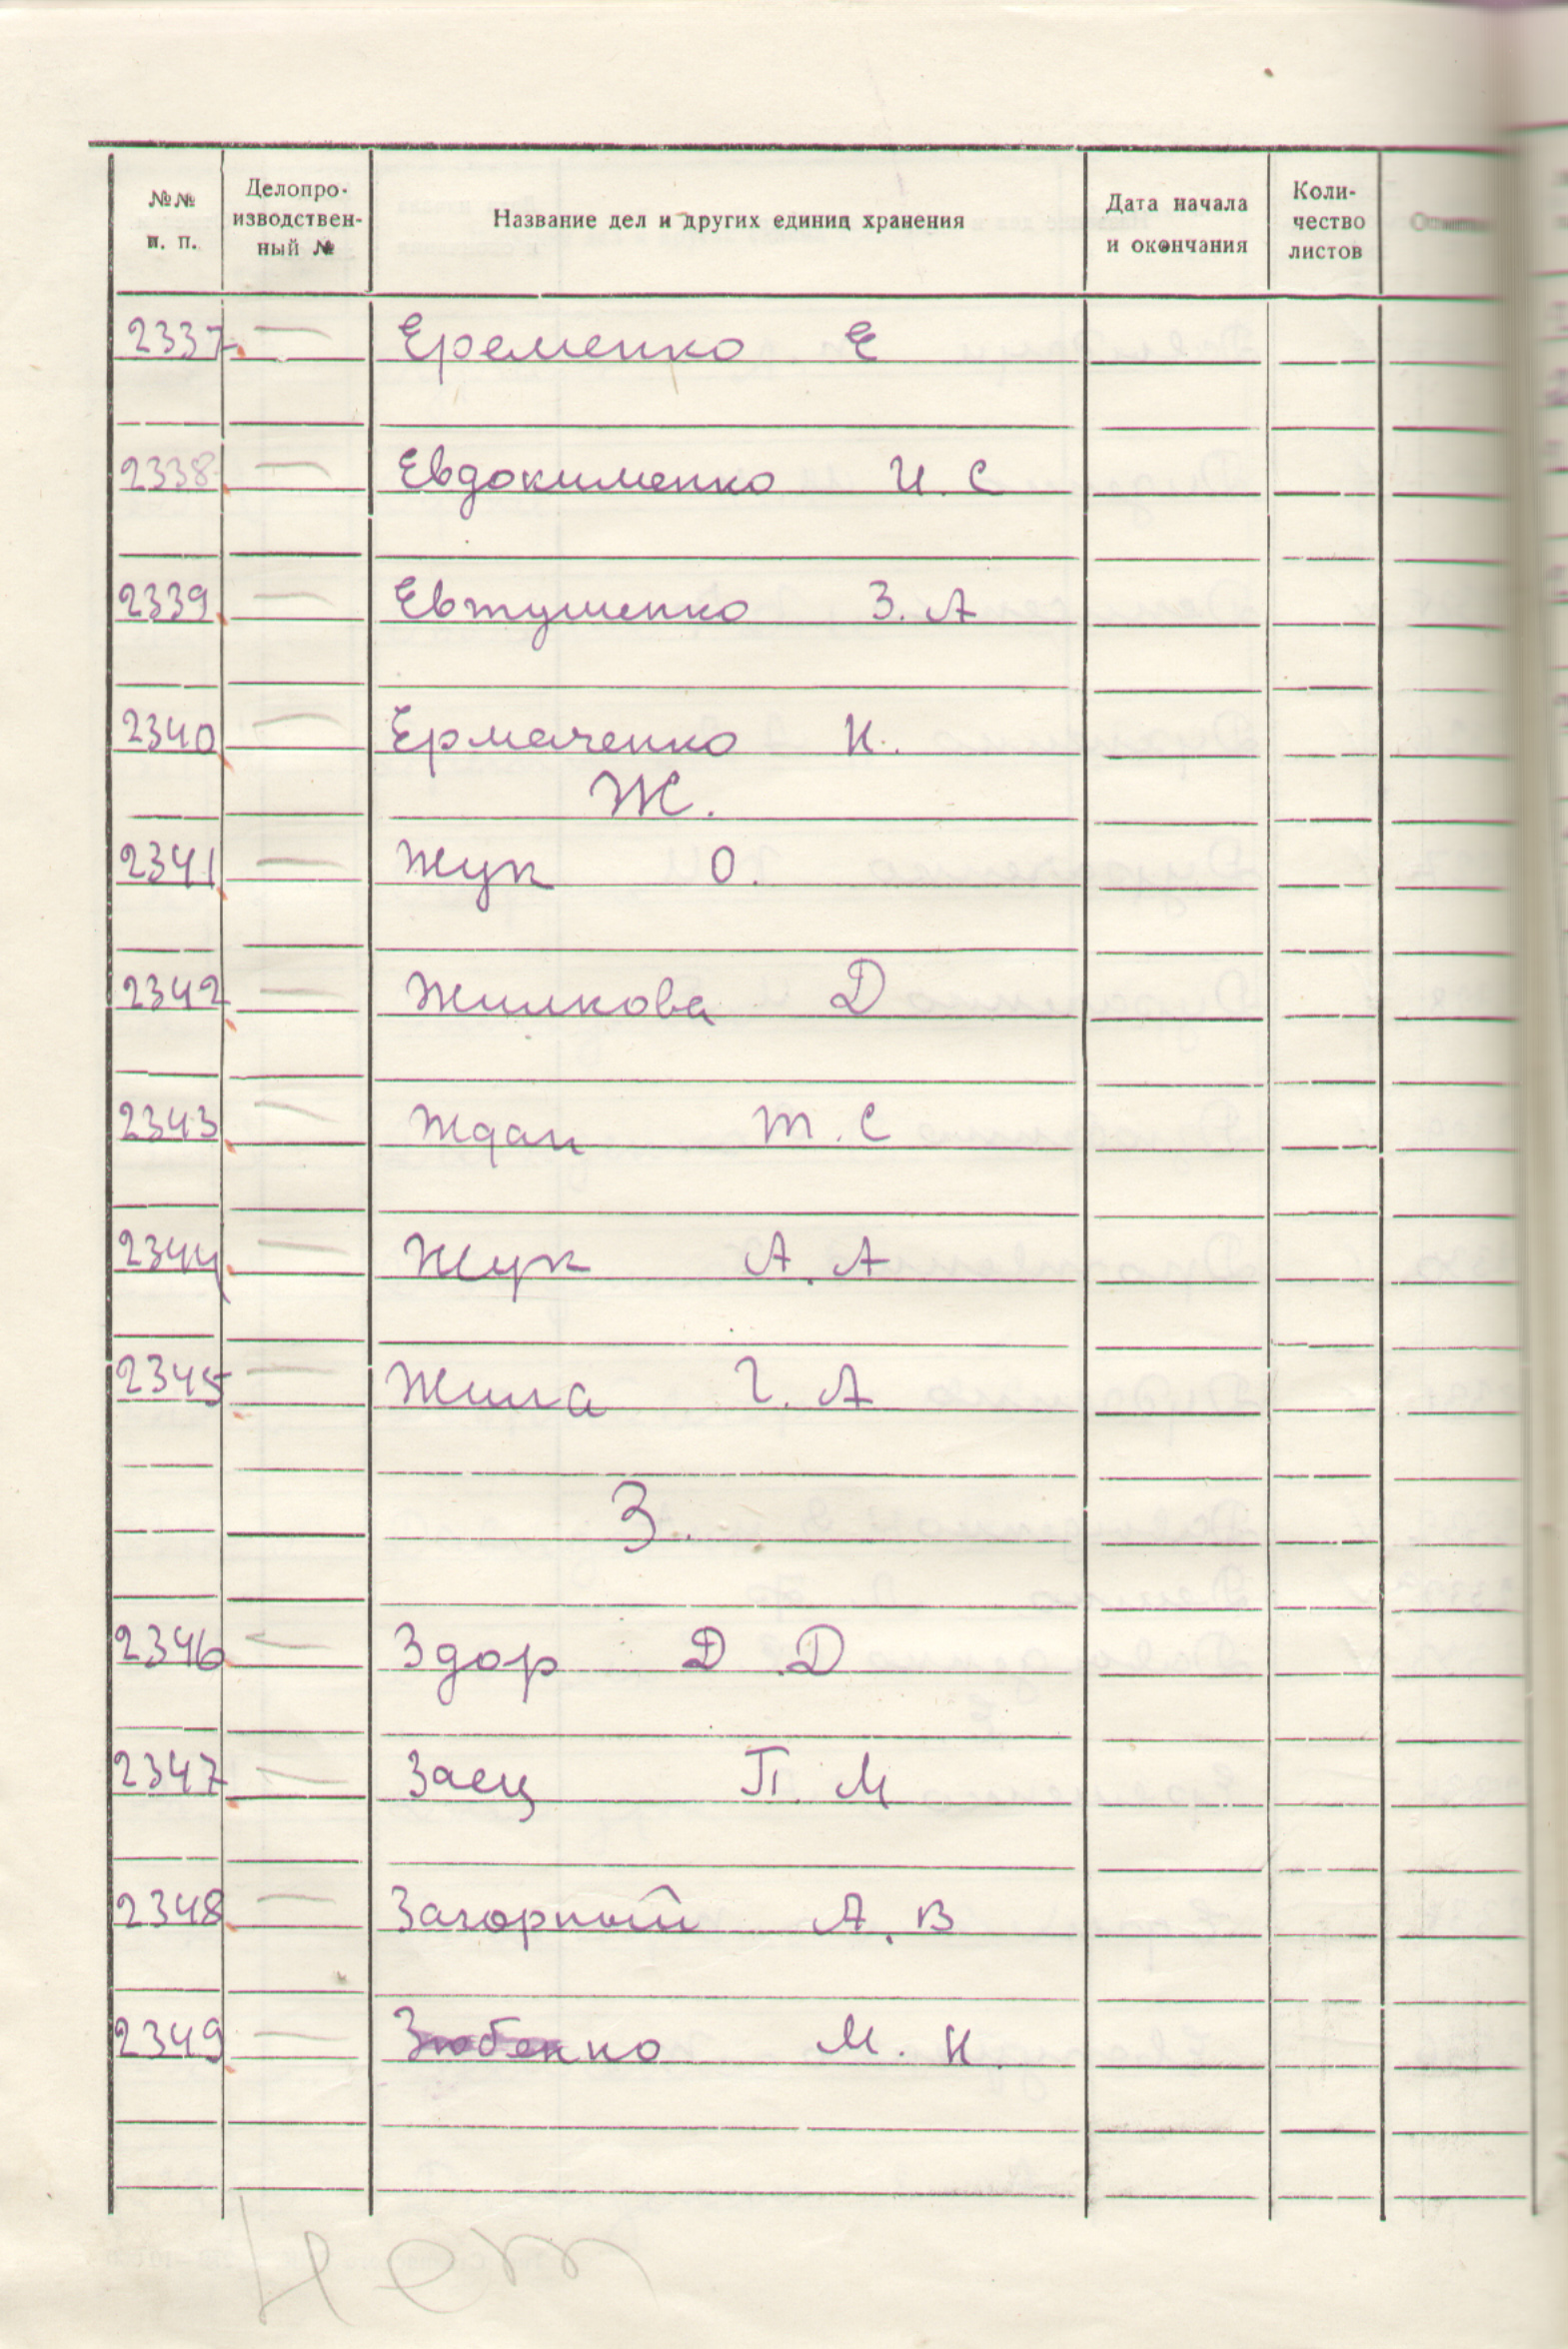 №№ п. п. Делопроизводственный № Название дел и других единиц хранения Дата начала и окончания Количество листов
2337 — Еременко Е
2338 — Евдокименко И. С
2339 — Евтушенко З. А
2340 — Ермаченко Н.
Ж.
2341 — Жук О.
2342 — Жилкова Д
2343 — Ждан Т. С
2344 — Жук А. А
2345 — Жила Г. А
З.
2346 — Здор Д. Д
2347 — Заец П. М
2348 — Загорный А. В
2349 — Зюбенко М. Н.
Нет